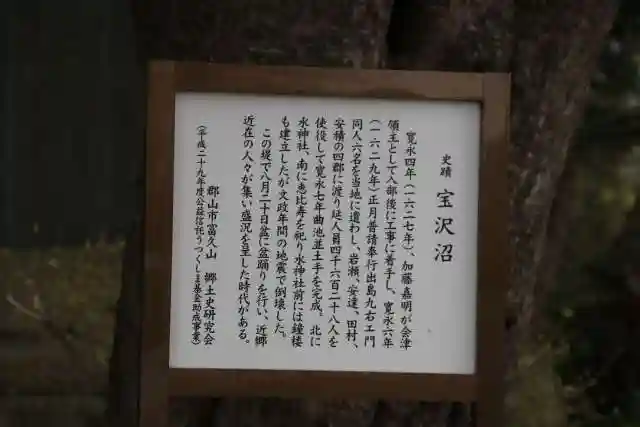 史蹟 宝沢沼
寛永四年(一六二七年)、加藤嘉明が会津
領主として入部後に工事に着手し、寛永六年
(一六二九年)正月普請奉行出島九右エ門
同人六名を当地に遣わし、岩瀬、安達、田村、
安積の四郡に渡り延人員四千六百二十八人を
使役して寛永七年曲池並土手を完成、北に
水神社、南に恵比寿を祀り水神社前には鐘楼
も建立したが文政年間の地震で倒壊した。
この堤で八月二十日盆に盆踊りを行い、近郷
近在の人々が集い盛況を呈した時代がある。
郡山市富久山 郷土史研究会
(平成二十九年度公益信託うつくしま基金助成事業)